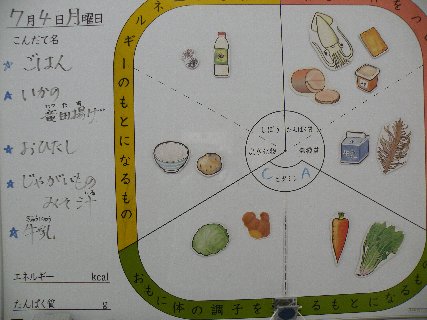 7月4日月曜日
こんだて名
☆ ごはん
★ いかの
たつた あ
竜田揚げ
★ おひたし
★ じゃがいもの
みそ汁
ぎゅうにゅう
★ 牛乳
エネルギー kcal
たんぱく質 g
ルネ
ギーのもとになるもの
をつ
おもに体の調子を
るもとになるもの
しぼう
たんぱく質
炭水化物
無機質
C ビタミン A
牛乳